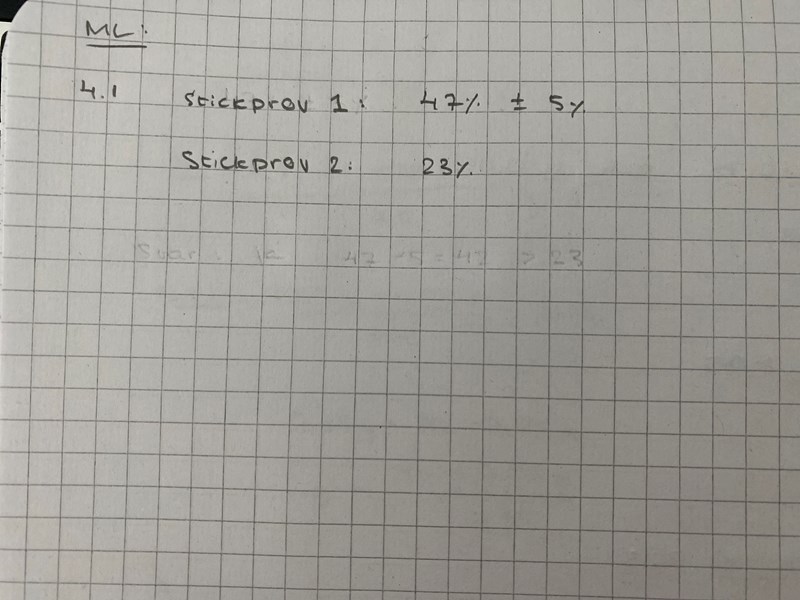 ML:
4.1 Stickprov 1: 47% ± 5%
Stickprov 2: 23%
Svar: Ja 47 - 5 = 42 > 23